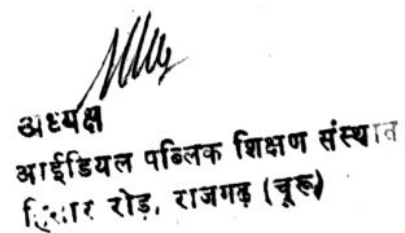 अध्यक्ष
आईडियल पब्लिक शिक्षण संस्थान
हिसार रोड़, राजगढ़ (चूरू)